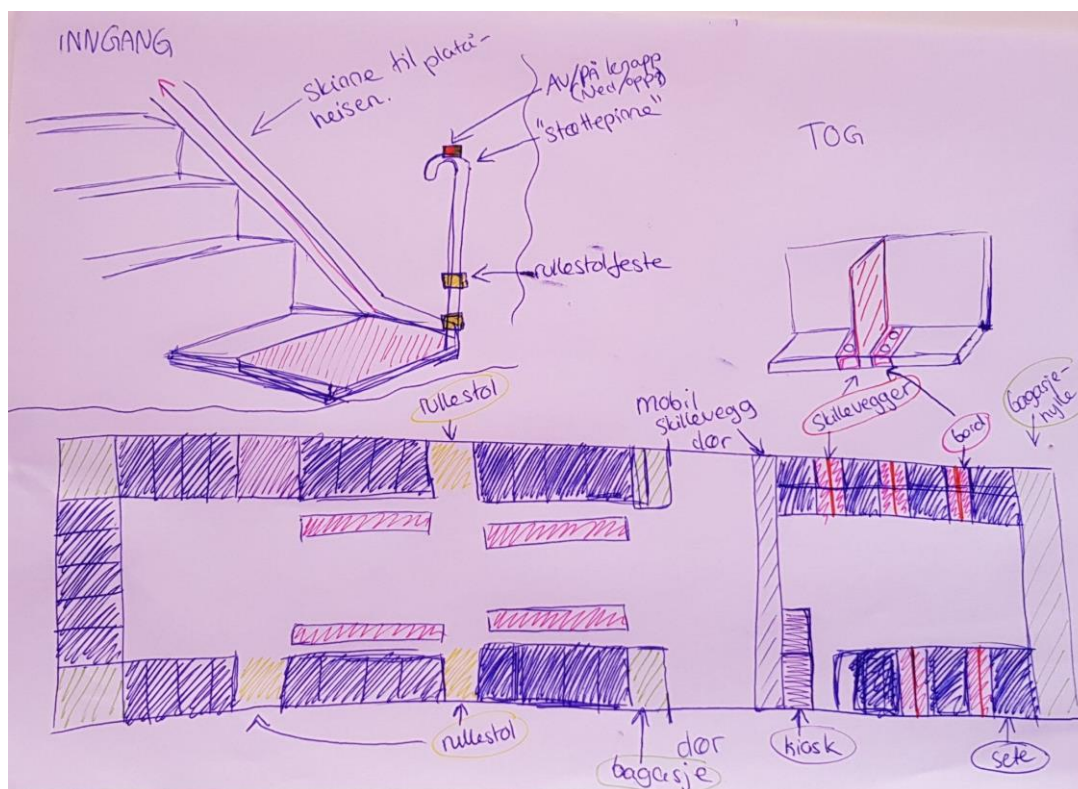 INNGANG
Skinne til platå-
heisen.
AV/PÅ knapp
(Ned/opp)
"Støttepinne"
rullestolfeste
TOG
rullestol
mobil
skillevegg
dør
Skillevegger
bord
bagasje-
hylle
rullestol
dør
bagasje
kiosk
sete